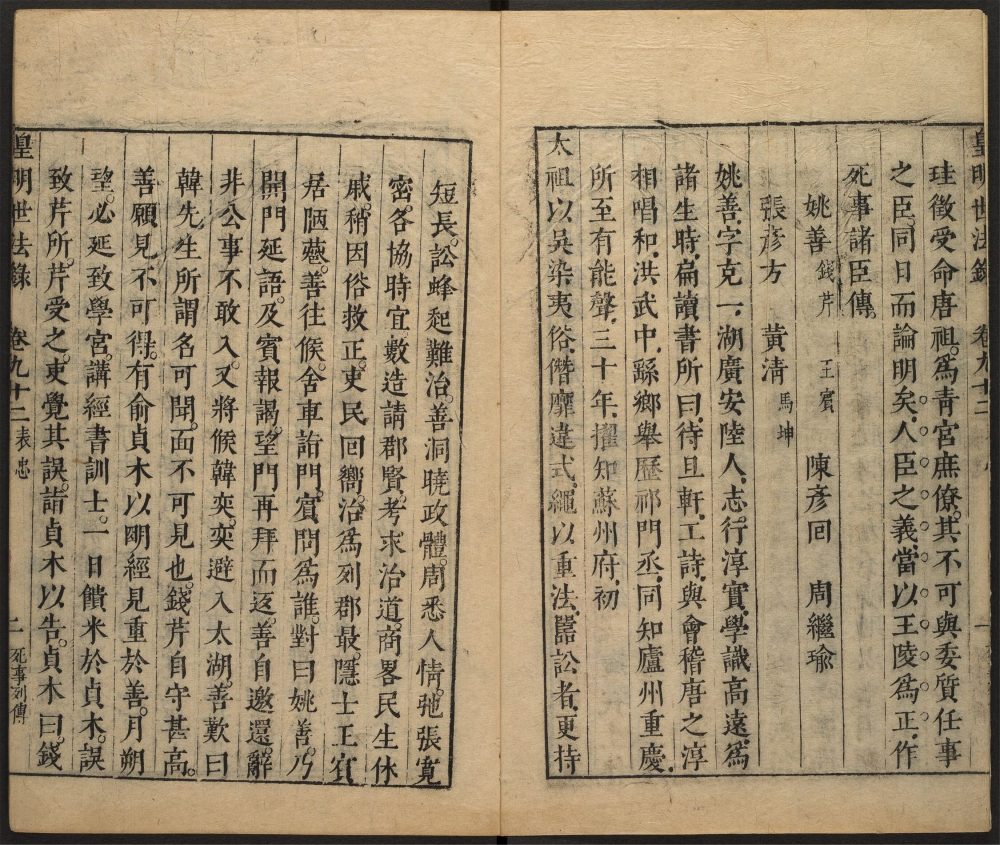 皇明世法錄 卷九十二
珪徵受命唐祖。爲青宮庶僚。其不可與委質任事
之臣。同日而論明矣。人臣之義。當以王陵爲正。作
死事諸臣傳。
姚善 錢芹 王賓 陳彥回 周繼瑜
張彥方 黃清 馬坤
姚善。字克一。湖廣安陸人。志行淳實。學識高遠。爲
諸生時。扁讀書所曰。待旦軒。工詩。與會稽唐之淳
相唱和。洪武中。繇鄉舉歷祁門丞。同知廬州重慶。
所至有能聲。三十年。擢知蘇州府。初
太祖以吳染夷俗。僭靡違式。繩以重法。嚚訟者。更持
短長。訟蜂起難治。善洞曉政體。周悉人情。弛張寬
密各協時宜。數造請郡賢。考求治道。商畧民生休
戚。稍因俗救正。吏民回嚮。治爲列郡最。隱士王賓
居陋巷。善往候。舍車詣門。賓問爲誰。對曰姚善。乃
開門延語。及賓報謁。望門再拜而返。善自邀還。辭
非公事不敢入。又將候韓奕。奕避入太湖。善歎曰
韓先生所謂名可聞。面不可見也。錢芹自守甚高。
善願見不可得。有俞貞木以明經見重於善。月朔
望。必延致學宮。講經書訓士。一日饋米於貞木。誤
致芹所。芹受之。吏覺其誤。詣貞木以告。貞木曰。錢
皇明世法錄 卷九十二 表忠 二 死事列傳